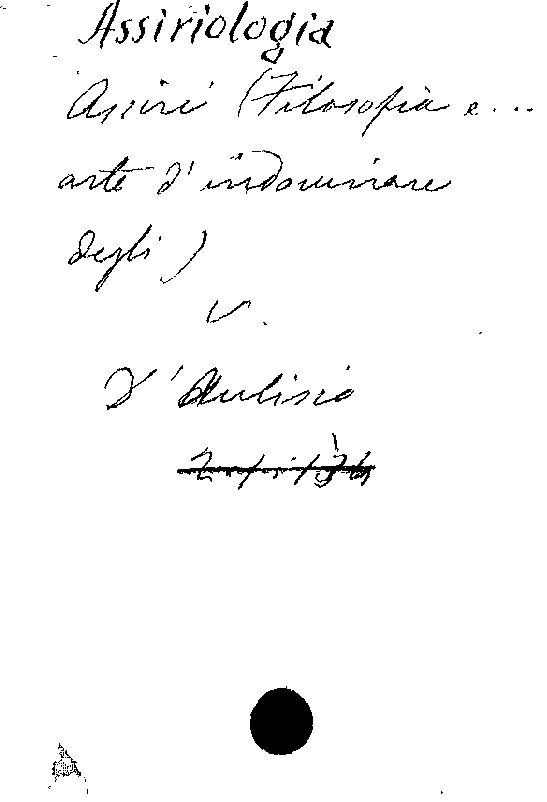 Assiriologia
Assiri (Filosofia e...
arte d'indovinare
degli)
V.
D'Aulisio